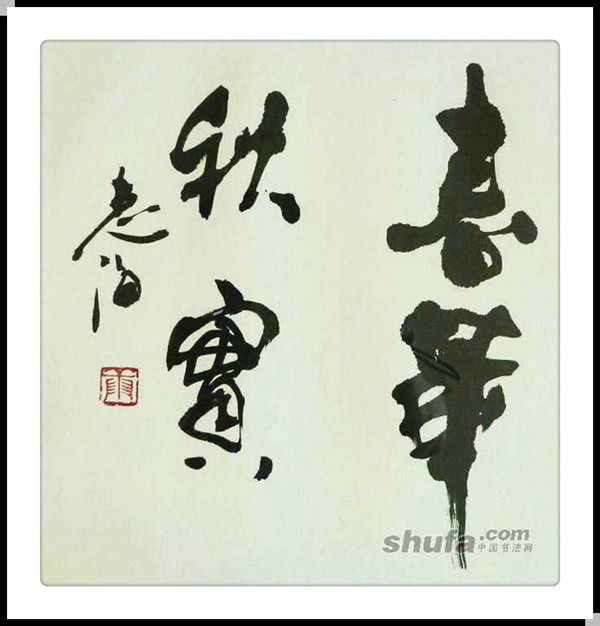 春華
秋實
shufa.com
中国书法网